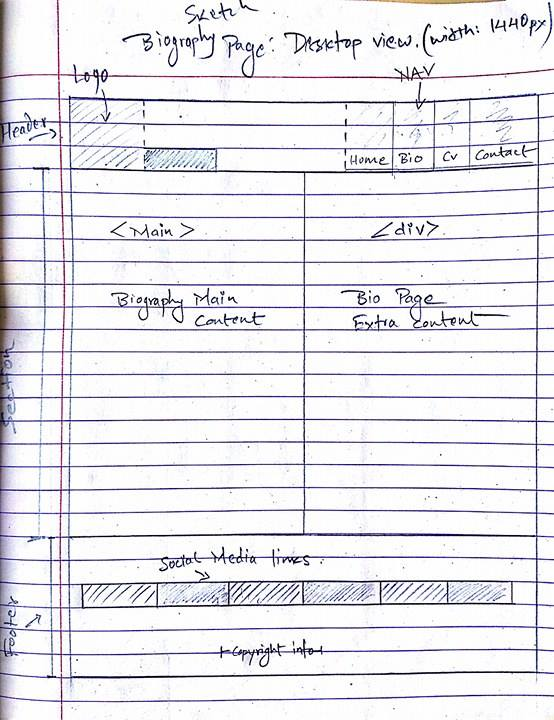 Sketch
Biography Page: Desktop view. (width: 1440px)
Logo
NAV
Header
Home Bio Cv Contact
<Main>
<div>
Biography Main
Content
Bio Page
Extra content
Section
Social Media links.
Footer
Copyright info